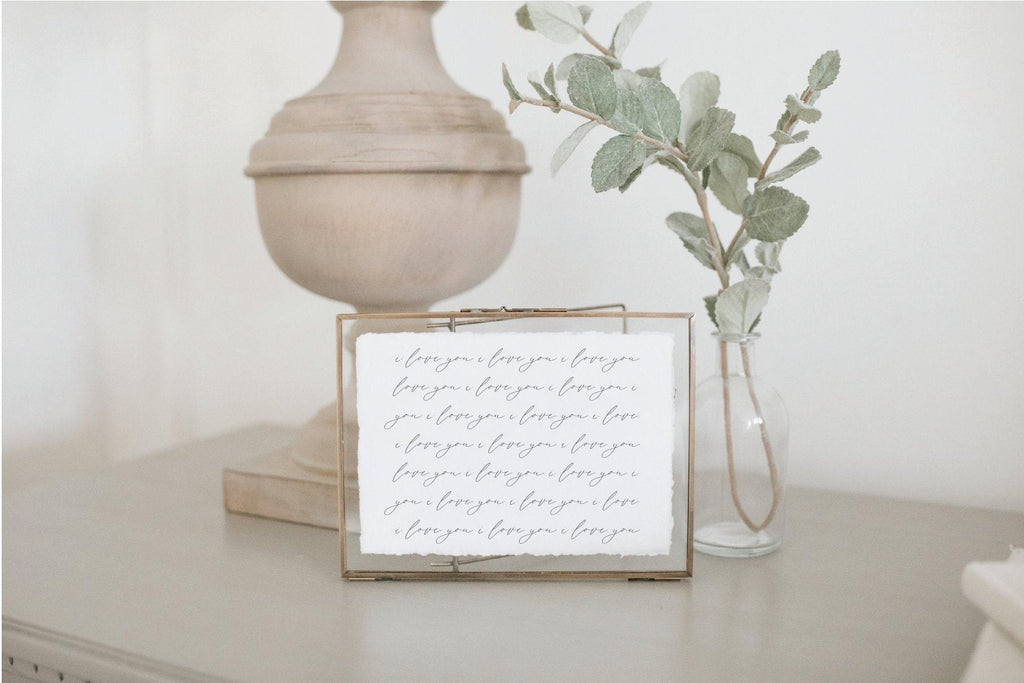 i love you i love you i love you
love you i love you i love you i
you i love you i love you i love
i love you i love you i love you
love you i love you i love you i
you i love you i love you i love
i love you i love you i love you